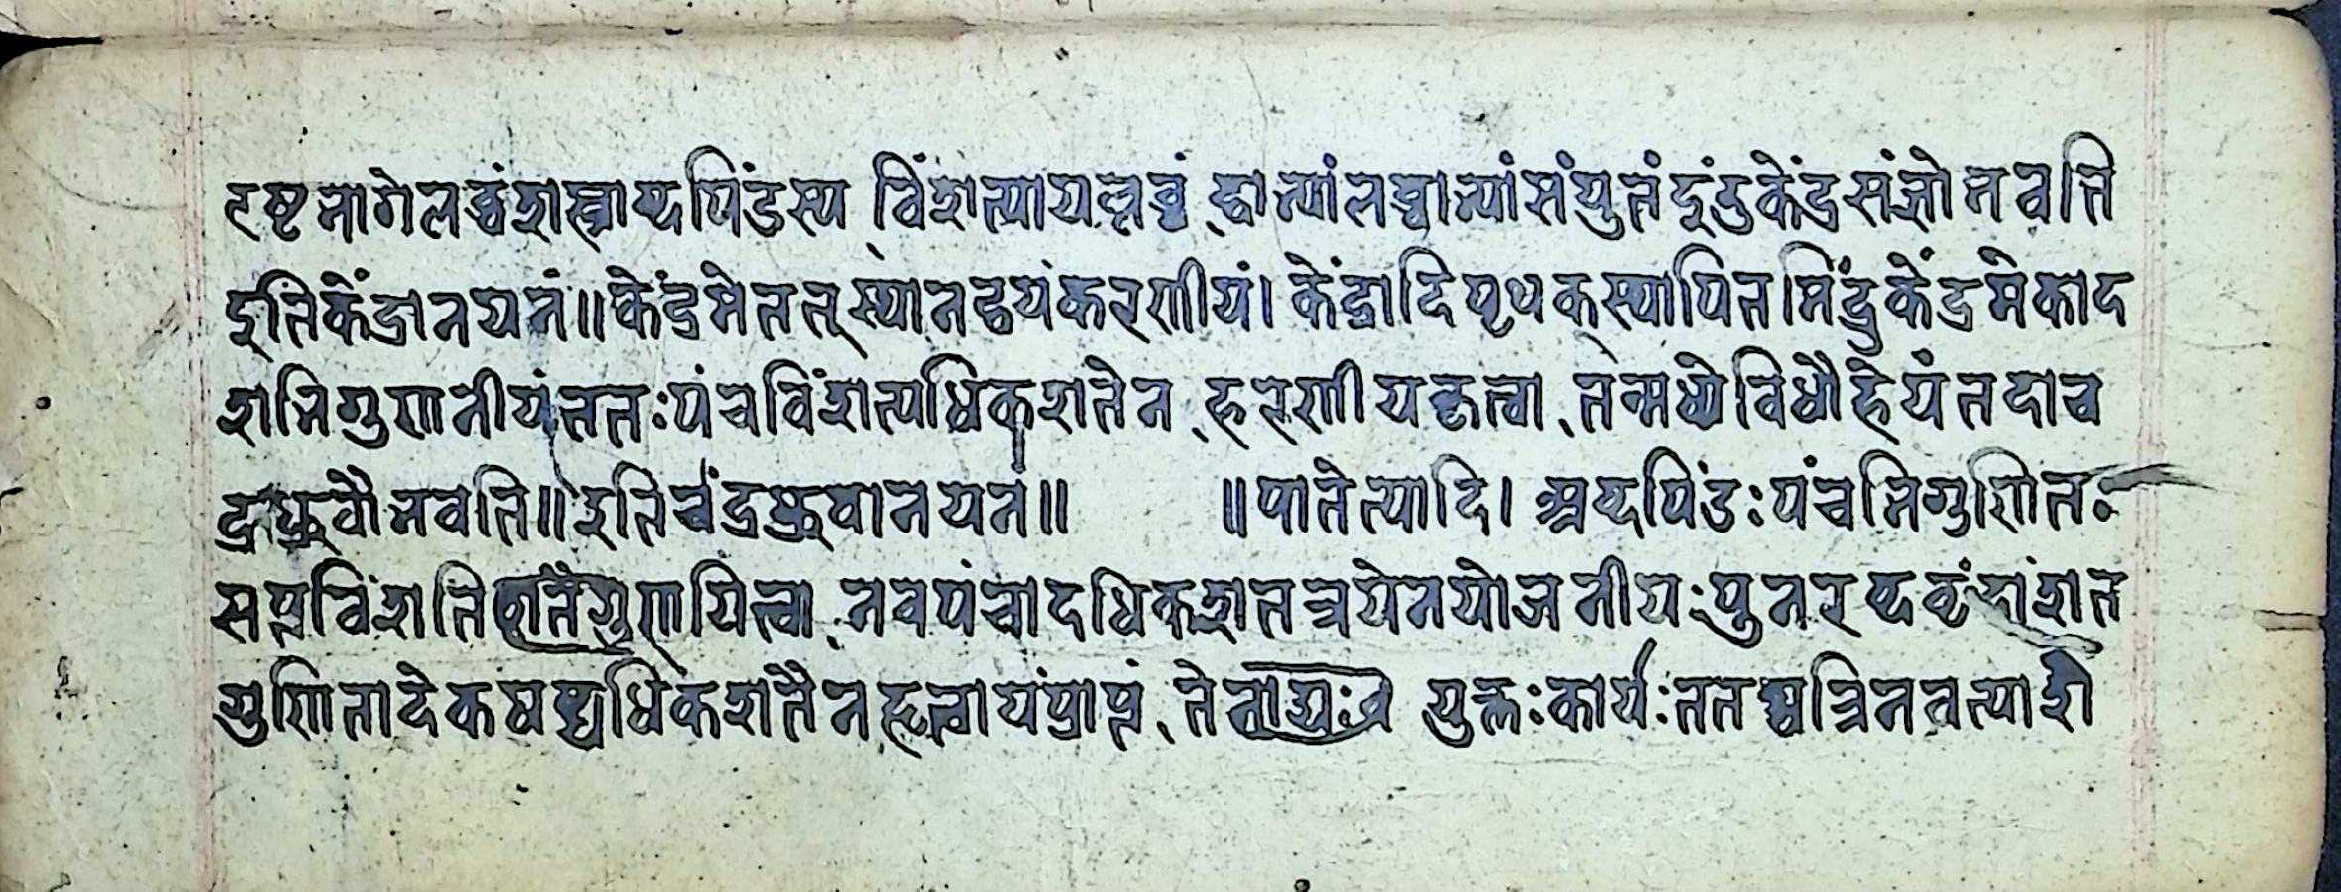 दृष्टभागेलब्धंशस्त्राब्दपिंडस्य विंशत्यायल्लब्धं द्वाभ्यांलब्धाभ्यांसंयुतंइंदुकेंद्रसंज्ञोभवति
इतिकेंद्रानयनं॥केंद्रमेतत्स्थानद्वयंकरणीयं। केंद्रादिपृथक्स्थापितमिंदुकेंद्रमेकाद
शभिगुणनीयंततःपंचविंशत्यधिकशतेन हरणीयंहृत्वा तन्मध्येविधौहेयंतदाच
द्रध्रुवोभवति॥इतिचंद्रध्रुवानयनं॥ ॥पातेत्यादि। अब्दपिंडःपंचभिगुणितः
सप्तविंशतिशतंगुणयित्वा नवपंचादधिकशतत्रयेनयोजनीयःपुनरब्दवृंदांशत
गुणितादेकषष्ट्यधिकशतैनहृत्वायंप्राप्तं तेन युक्तःकार्यःततश्चत्रिनवत्याशे